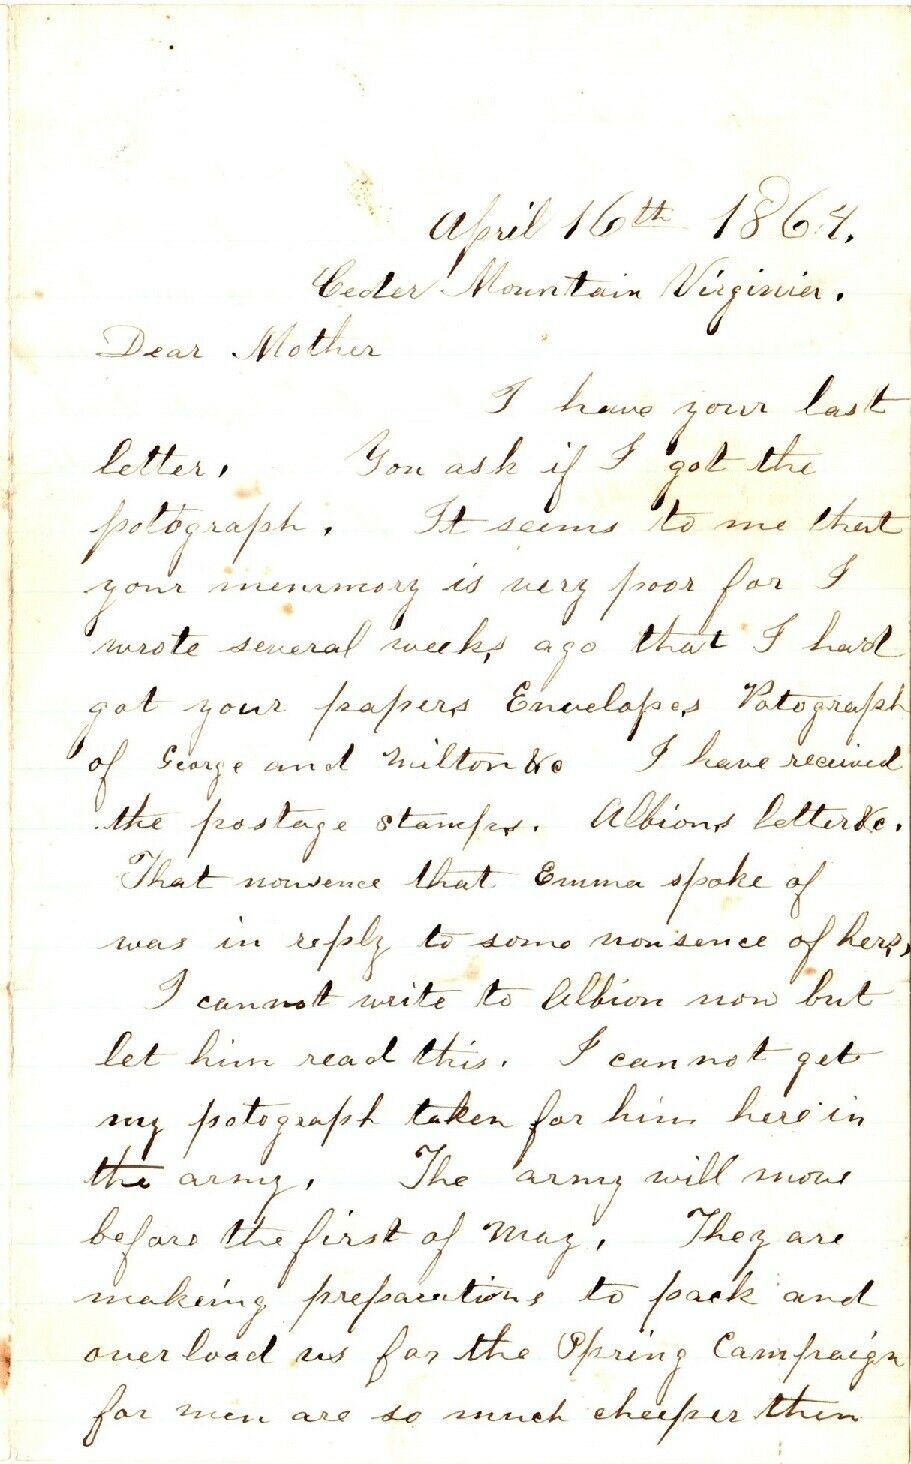 April 16th 1864.
Ceder Mountain Virginier.
Dear Mother
I have your last
letter. You ask if I got the
potograph. It seems to me that
your memmory is very poor for I
wrote several weeks ago that I had
got your papers Envelopes Potograph
of George and Milton &c I have received
the postage stamps. Albions letter &c.
That nonsence that Emma spoke of
was in reply to some nonsence of hers,
I cannot write to Albion now but
let him read this. I cannot get
my potograph taken for him here in
the army. The army will move
before the first of May. They are
makeing preparations to pack and
overload us for the Spring Campaign
for men are so much cheeper then